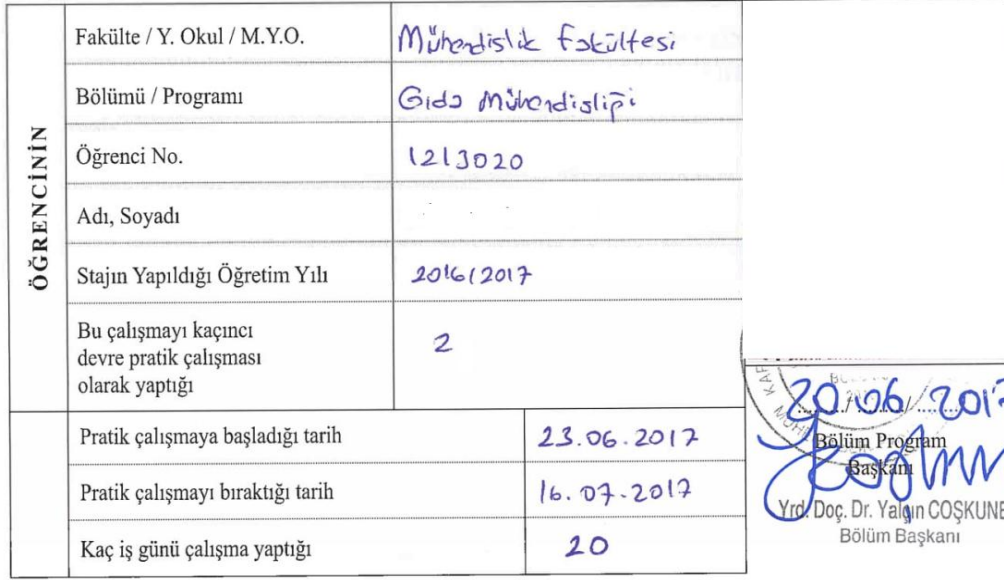 ÖĞRENCİNİN
Fakülte / Y. Okul / M.Y.O. Mühendislik Fakültesi
Bölümü / Programı Gıda Mühendisliği
Öğrenci No. 1213020
Adı, Soyadı
Stajın Yapıldığı Öğretim Yılı 2016/2017
Bu çalışmayı kaçıncı
devre pratik çalışması 2
olarak yaptığı
Pratik çalışmaya başladığı tarih 23.06.2017
Pratik çalışmayı bıraktığı tarih 16.07.2017
Kaç iş günü çalışma yaptığı 20
20/06/2017
Bölüm Program
Başkanı
Yrd. Doç. Dr. Yalçın COŞKUNE
Bölüm Başkanı